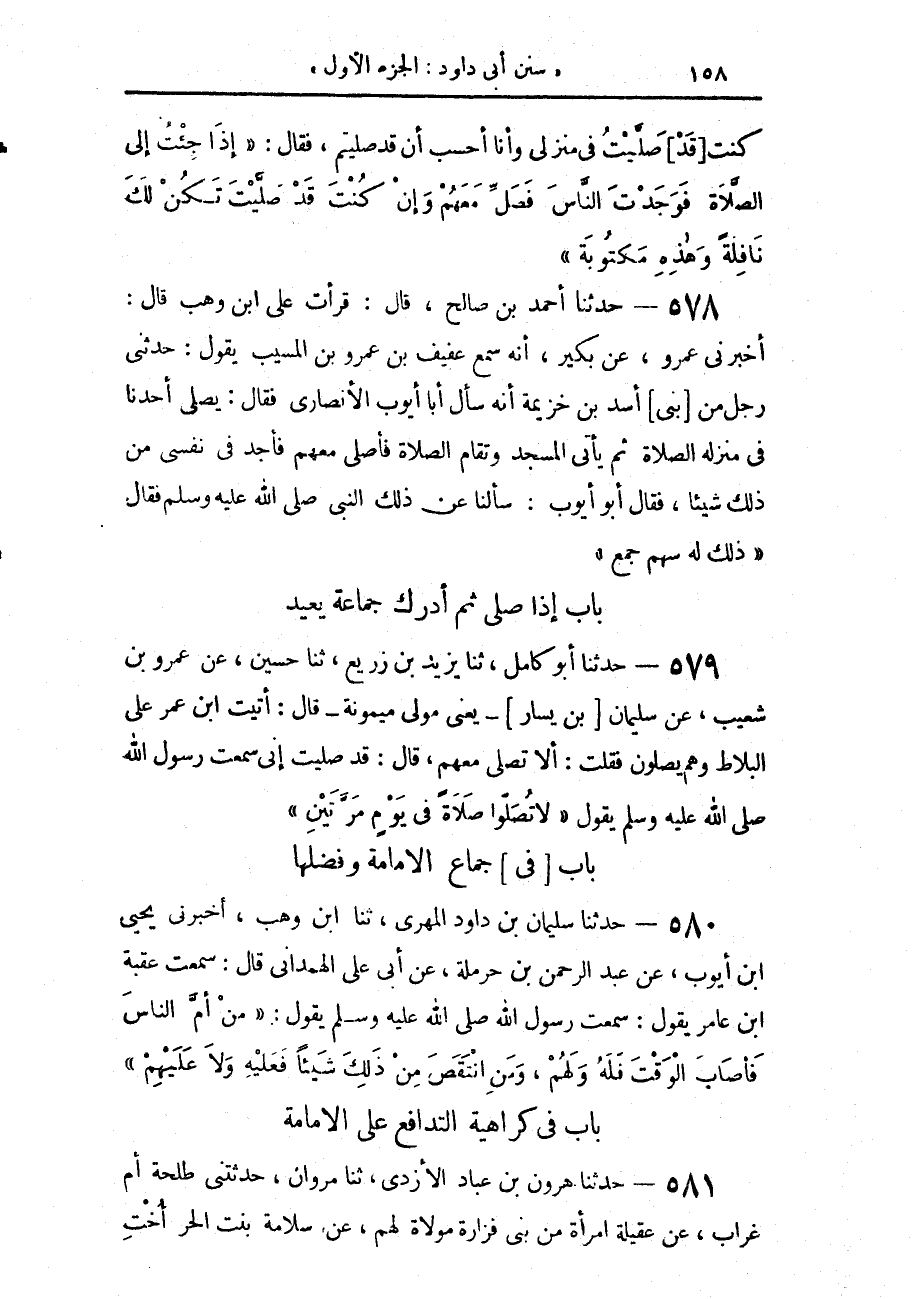 ١٥٨ « سنن أبى داود : الجزء الأول »
كنت [قَدْ] صَلَّيْتُ فى منزلى وأنا أحسب أن قد صليتم ، فقال : « إِذَا جِئْتُ إلى
الصَّلَاة فَوَجَدْتَ النَّاسَ فَصَلِّ مَعَهُمْ وَإِنْ كُنْتَ قَدْ صَلَّيْتَ تَكُنْ لَكَ
نَافِلَةً وَهٰذِهِ مَكْتُوبَة »
٥٧٨ — حدثنا أحمد بن صالح ، قال : قرأت على ابن وهب قال :
أخبرنى عمرو ، عن بكير ، أنه سمع عفيف بن عمرو بن المسيب يقول : حدثنى
رجل من [بنى] أسد بن خزيمة أنه سأل أبا أيوب الأنصارى فقال : يصلى أحدنا
فى منزله الصلاة ثم يأتى المسجد وتقام الصلاة فأصلى معهم فأجد فى نفسى من
ذلك شيئا ، فقال أبو أيوب : سألنا عن ذلك النبى صلى الله عليه وسلم فقال
« ذلك له سهم جمع »
باب إذا صلى ثم أدرك جماعة يعيد
٥٧٩ — حدثنا أبو كامل ، ثنا يزيد بن زريع ، ثنا حسين ، عن عمرو بن
شعيب ، عن سليمان [ بن يسار ] ـ يعنى مولى ميمونة ـ قال : أتيت ابن عمر على
البلاط وهم يصلون فقلت : ألا تصلى معهم ، قال : قد صليت إنى سمعت رسول الله
صلى الله عليه وسلم يقول « لا تُصَلّوا صَلَاةً فى يَوْمٍ مَرَّتَيْنِ »
باب [ فى ] جماع الامامة وفضلها
٥٨٠ — حدثنا سليمان بن داود المهرى ، ثنا ابن وهب ، أخبرنى يحيى
ابن أيوب ، عن عبد الرحمن بن حرملة ، عن أبى على الهمدانى قال : سمعت عقبة
ابن عامر يقول : سمعت رسول الله صلى الله عليه وسلم يقول : « منْ أمَّ الناسَ
فَأصَابَ الْوَقْتَ فَلَهُ وَلَهُمْ ، وَمَنِ انْتَقَصَ مِنْ ذَلِكَ شَيئاً فَعَليْهِ وَلاَ عَلَيْهِمْ »
باب فى كراهية التدافع على الامامة
٥٨١ — حدثنا هرون بن عباد الأزدى ، ثنا مروان ، حدثتنى طلحة أم
غراب ، عن عقيلة امرأة من بنى فزارة مولاة لهم ، عن سلامة بنت الحر أُخْتِ